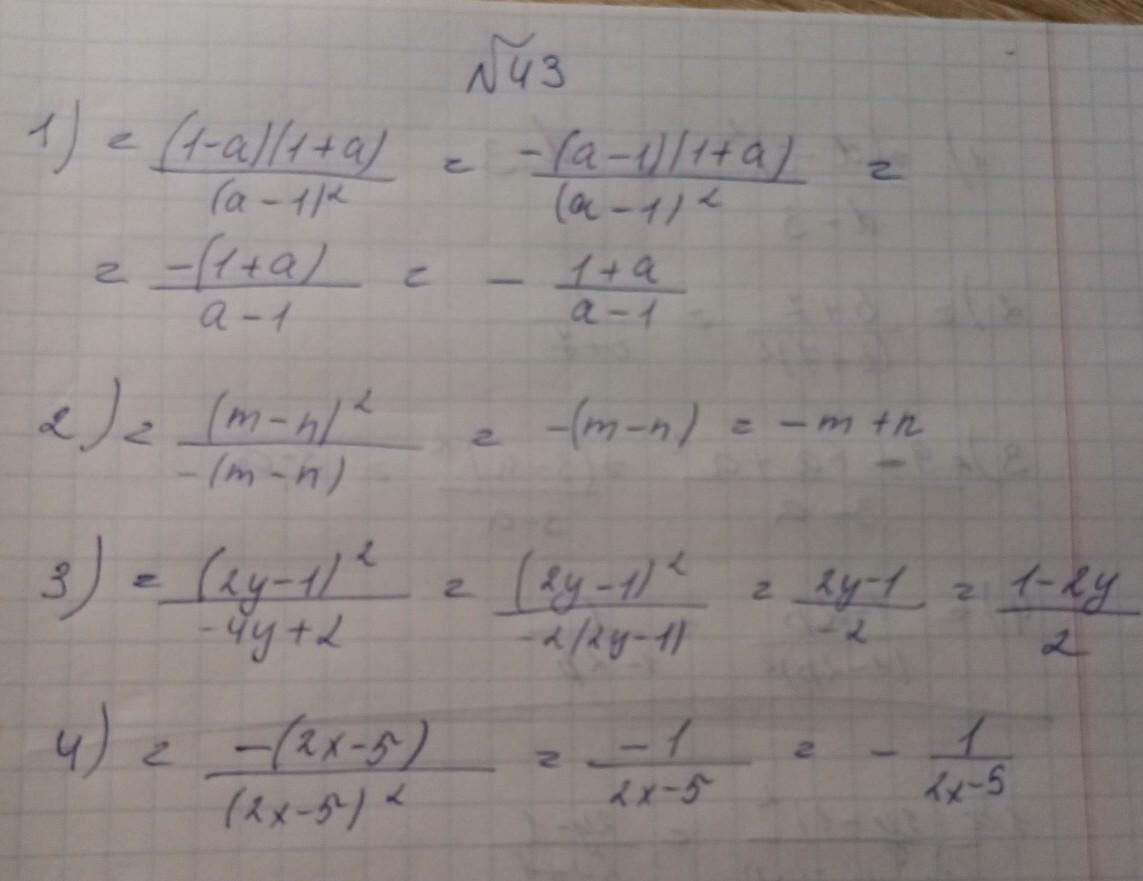 №43
1) = (1-a)(1+a) / (a-1)² = -(a-1)(1+a) / (a-1)² =
= -(1+a) / a-1 = - 1+a / a-1
2) = (m-n)² / -(m-n) = -(m-n) = -m+n
3) = (2y-1)² / -4y+2 = (2y-1)² / -2(2y-1) = 2y-1 / -2 = 1-2y / 2
4) = -(2x-5) / (2x-5)² = -1 / 2x-5 = - 1 / 2x-5